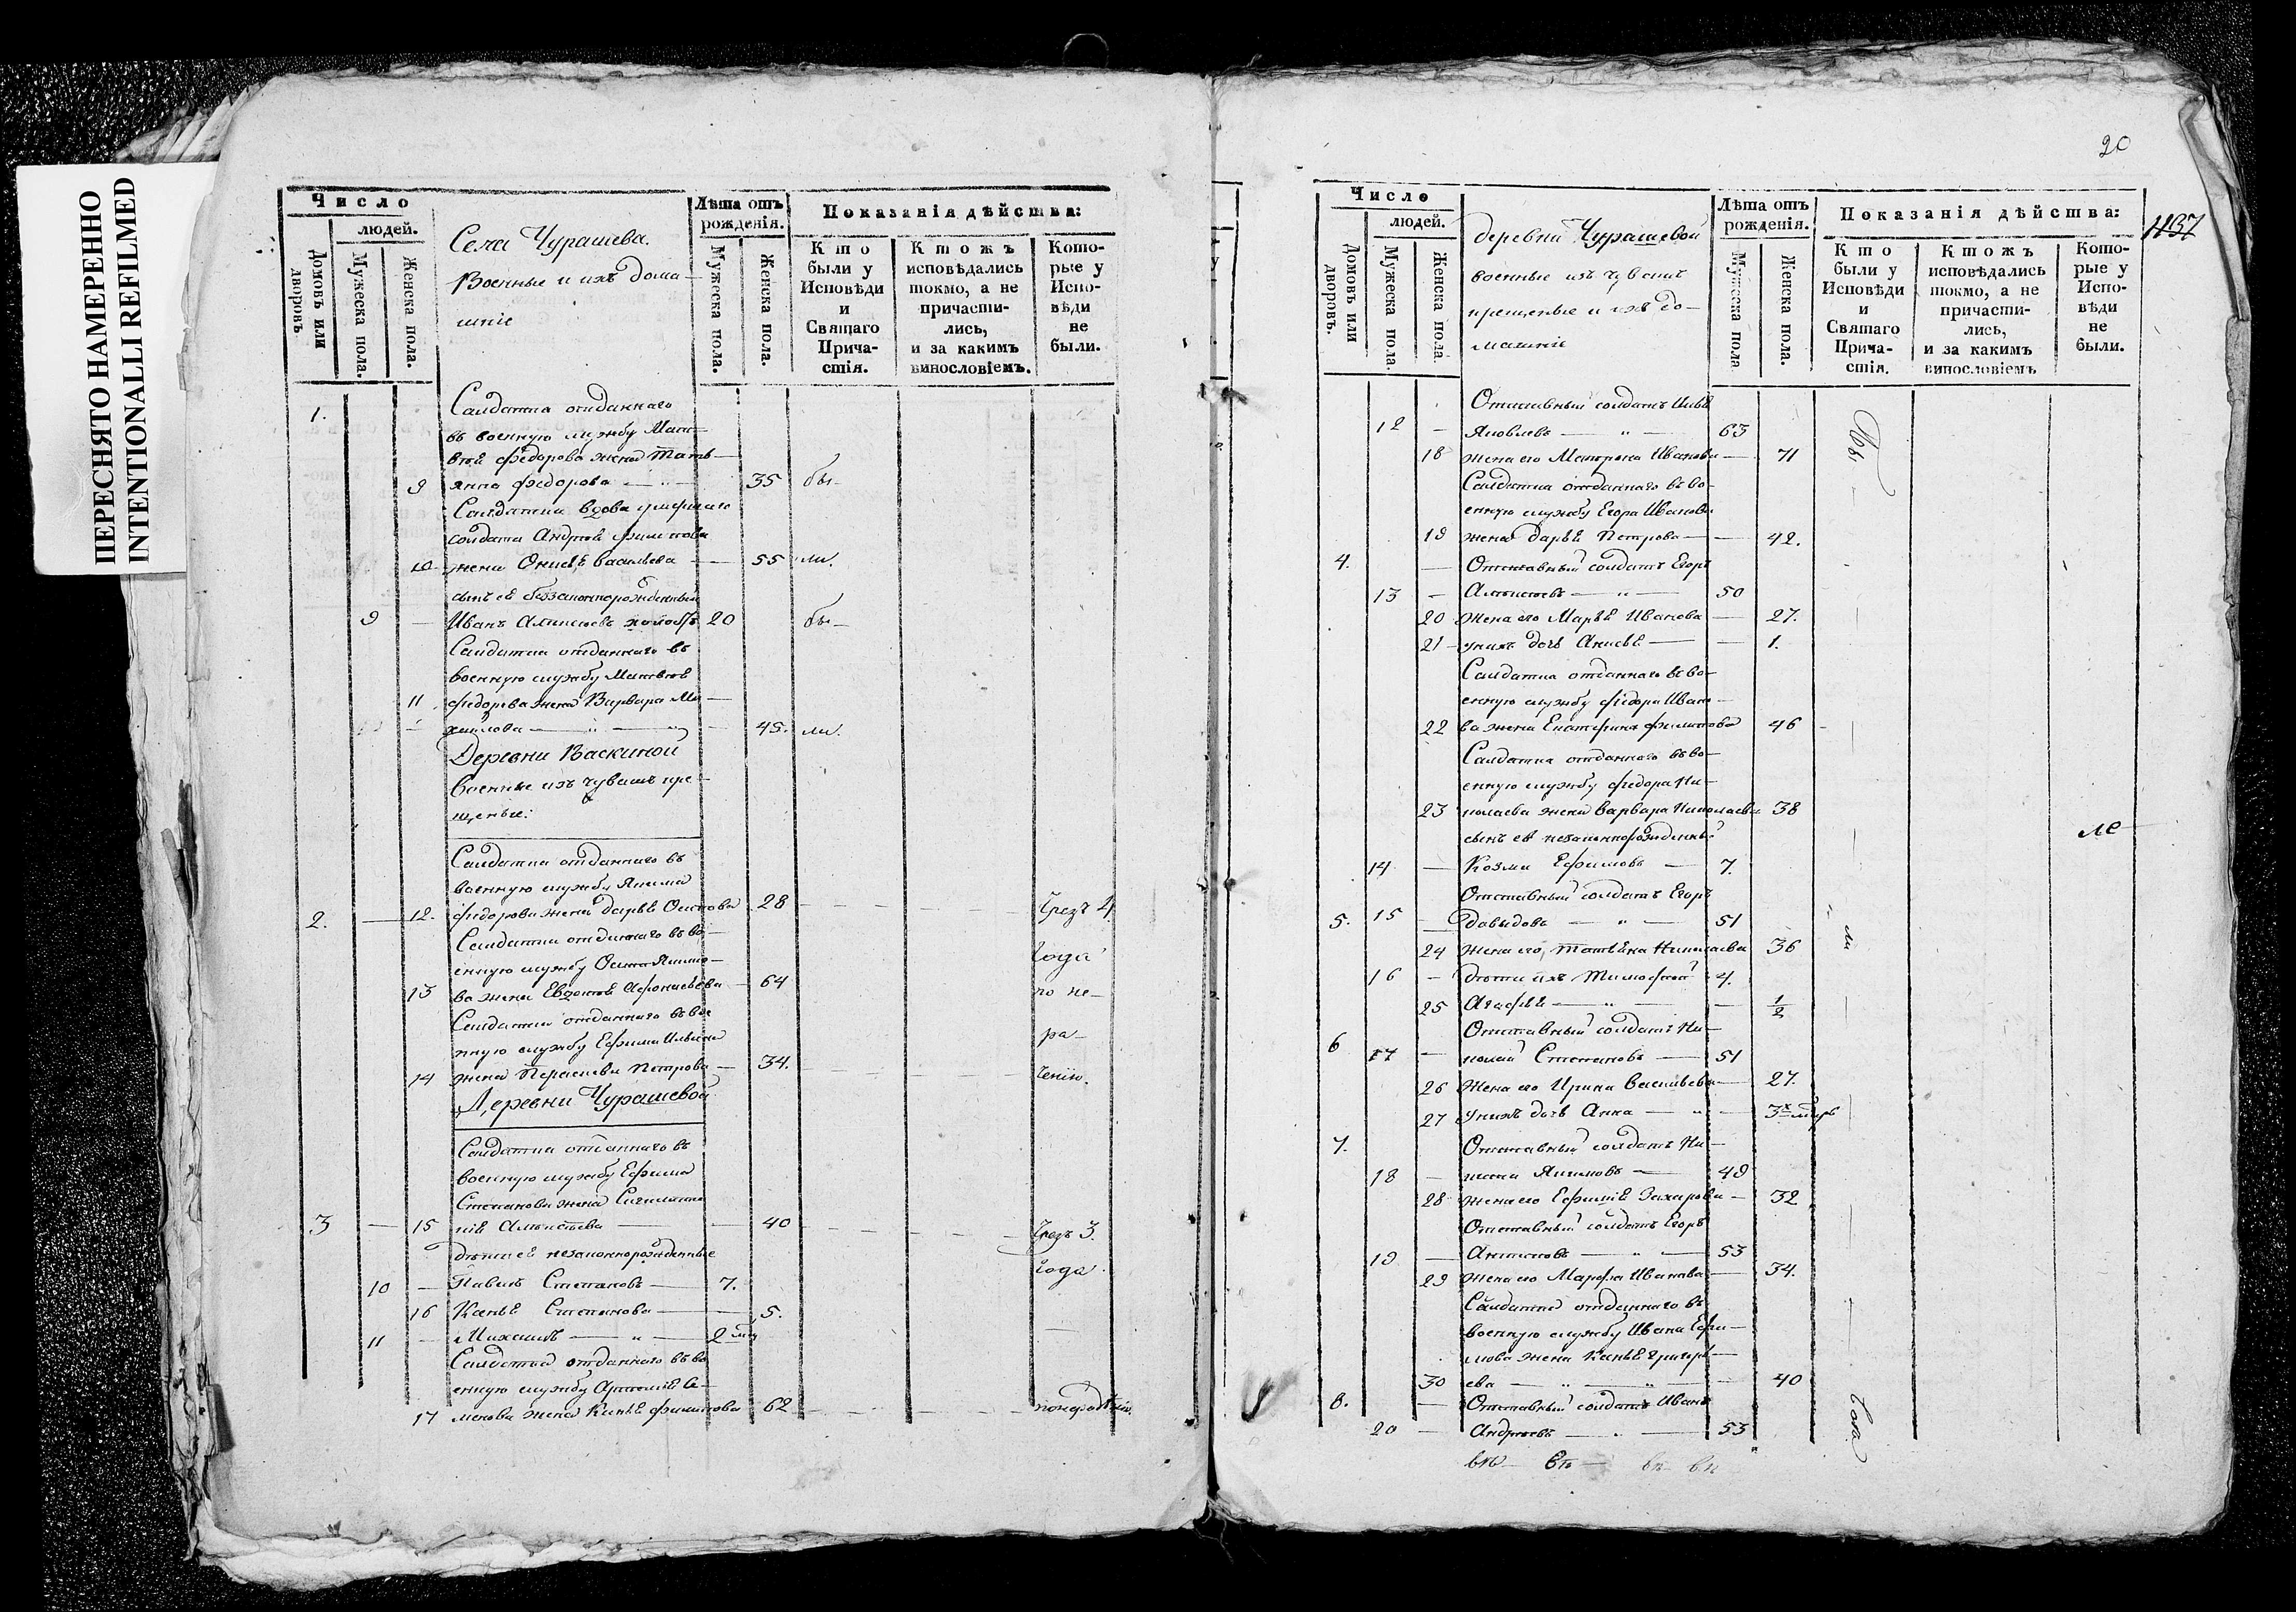 ПЕРЕСНЯТО НАМЕРЕННО
INTENTIONALLI REFILMED
Число
людей.
Домовъ или дворовъ.
Мужеска пола.
Женска пола.
Села Чурашева.
Военные и ихъ дома-
шніе
Лѣта отъ
рожденія.
Мужеска пола.
Женска пола.
Показанія дѣйства:
Кто
были у
Исповѣди
и
Святаго
Прича-
стія.
Ктожъ
исповѣдались
токмо, а не
причасти-
лись,
и за какимъ
винословіемъ.
Кото-
рые у
Испо-
вѣди
не
были.
1. Салдатка отданнаго
въ военную службу Мат-
вея Федорова жена Тать-
9 янна Федорова — " — 35 бы-
Салдатка вдова умершаго
солдата Андрея Филипова
10 жена Васильева — 55 ли.
сынъ ее беззаконнорожденный
9 — Иванъ Алексеевъ холостъ 20 бы-
Салдатка отданнаго въ
военную службу
11 Федорова жена Варвара Ми-
хайлова — " — " — 45. ли.
Деревни Васкиной
Военные изъ чувашъ кре-
щеные:
Салдатка отданнаго въ
военную службу Якима
2. — 12. Федорова жена Дарья Осипова 28 — Чрезъ 4
Салдатка отданнаго въ во-
года
енную службу Осипа Якимо-
13 ва жена Евдокея Афонасьева — 64 по не-
Салдатка отданнаго въ вое
нную службу Ефима Ильина ра-
14 жена Петрова — 34. ченію.
Деревни Чурашевой
Салдатка отданнаго въ
военную службу Ефима
Степанова жена
3 — 15 Алексеева — 40 — Чрезъ 3.
дѣти ее незаконнорожденные
года.
10 — Павелъ Степановъ — 7.
16 Степанова — 5.
11 — Михаилъ — " — 2 мц
Салдатка отданнаго въ во
енную службу Артемія Се-
17 менова жена Филипова 62
20
1137
Число
людей.
Домовъ или дворовъ.
Мужеска пола.
Женска пола.
деревни Чурашевой
военные изъ чувашъ
крещеные и ихъ до-
машніе
Лѣта отъ
рожденія.
Мужеска пола
Женска пола.
Показанія дѣйства:
Кто
были у
Исповѣди
и
Святаго
Прича-
стія.
Ктожъ
исповѣдались
токмо, а не
причасти-
лись,
и за какимъ
винословіемъ
Кото-
рые у
Испо-
вѣди
не
были.
Отставный солдатъ
12 — Яковлевъ — " — 63
18 жена его Матрона Иванова — 71
Салдатка отданнаго въ во-
енную службу Егора Иванова
19 жена Дарья Петрова — 42.
4. — Отставный солдатъ Егоръ
13 — Алексеевъ — " — 50
20 Жена его Марья Иванова — 27.
21 — у нихъ дочь — 1.
Салдатка отданнаго въ во-
енную службу Федора Ивано-
22 ва жена Екатерина Филипова 46
Салдатка отданнаго въ во-
енную службу Федора Ни-
23 колаева жена Варвара Николаева 38
сынъ ее незаконнорожденный
ле
14 — Козма Ефимовъ — 7.
Отставный солдатъ Егоръ
5. 15 — Давыдовъ — " — 51
24 Жена его, Татьяна Николаева 36
16 — дѣти ихъ Тимофей 4.
25 Агафья — " — 1/2
Отставный солдатъ Ни-
6 17 — колай Степановъ — 51
26 Жена его Ирина Васильева — 27.
27 У нихъ дочь Анна — " — 3х
7. Отставный солдатъ Ни-
18 — Якимовъ — 49
28 Жена его Ефимія Захарова — 32
Отставный солдатъ Егоръ
19 — Антиповъ — " — 53
29 Жена его Марфа Иванова — 34.
Салдатка отданнаго въ
военную службу Ивана Ефи-
мова жена Григорь-
30 ева — " — " — 40
8. — Отставный солдатъ Иванъ
20 — Андреевъ — . — 53